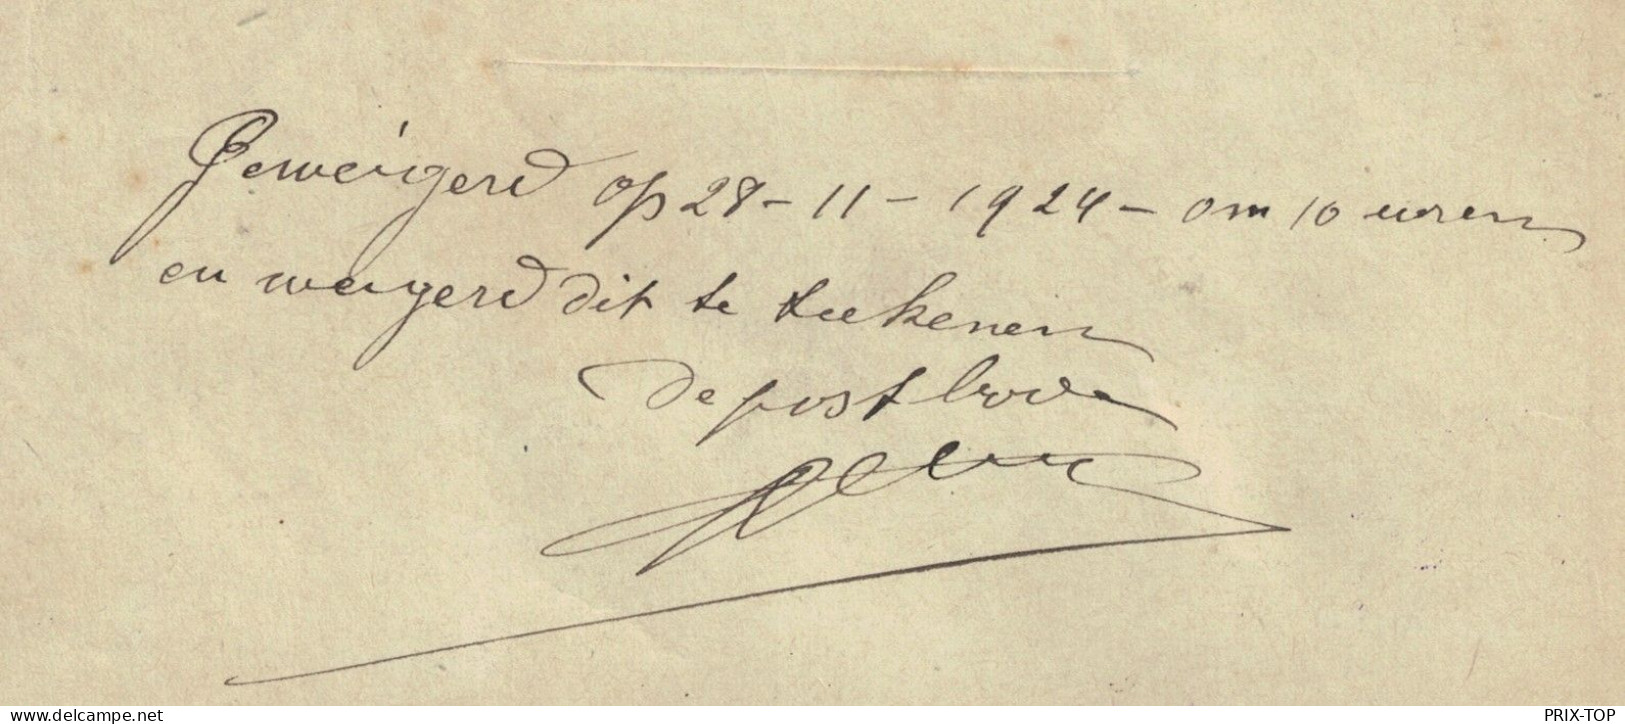 Geweigerd op 28-11-1924- om 10 uren
en weigerd dit te teekenen
De postbode
www.delcampe.net
PRIX-TOP